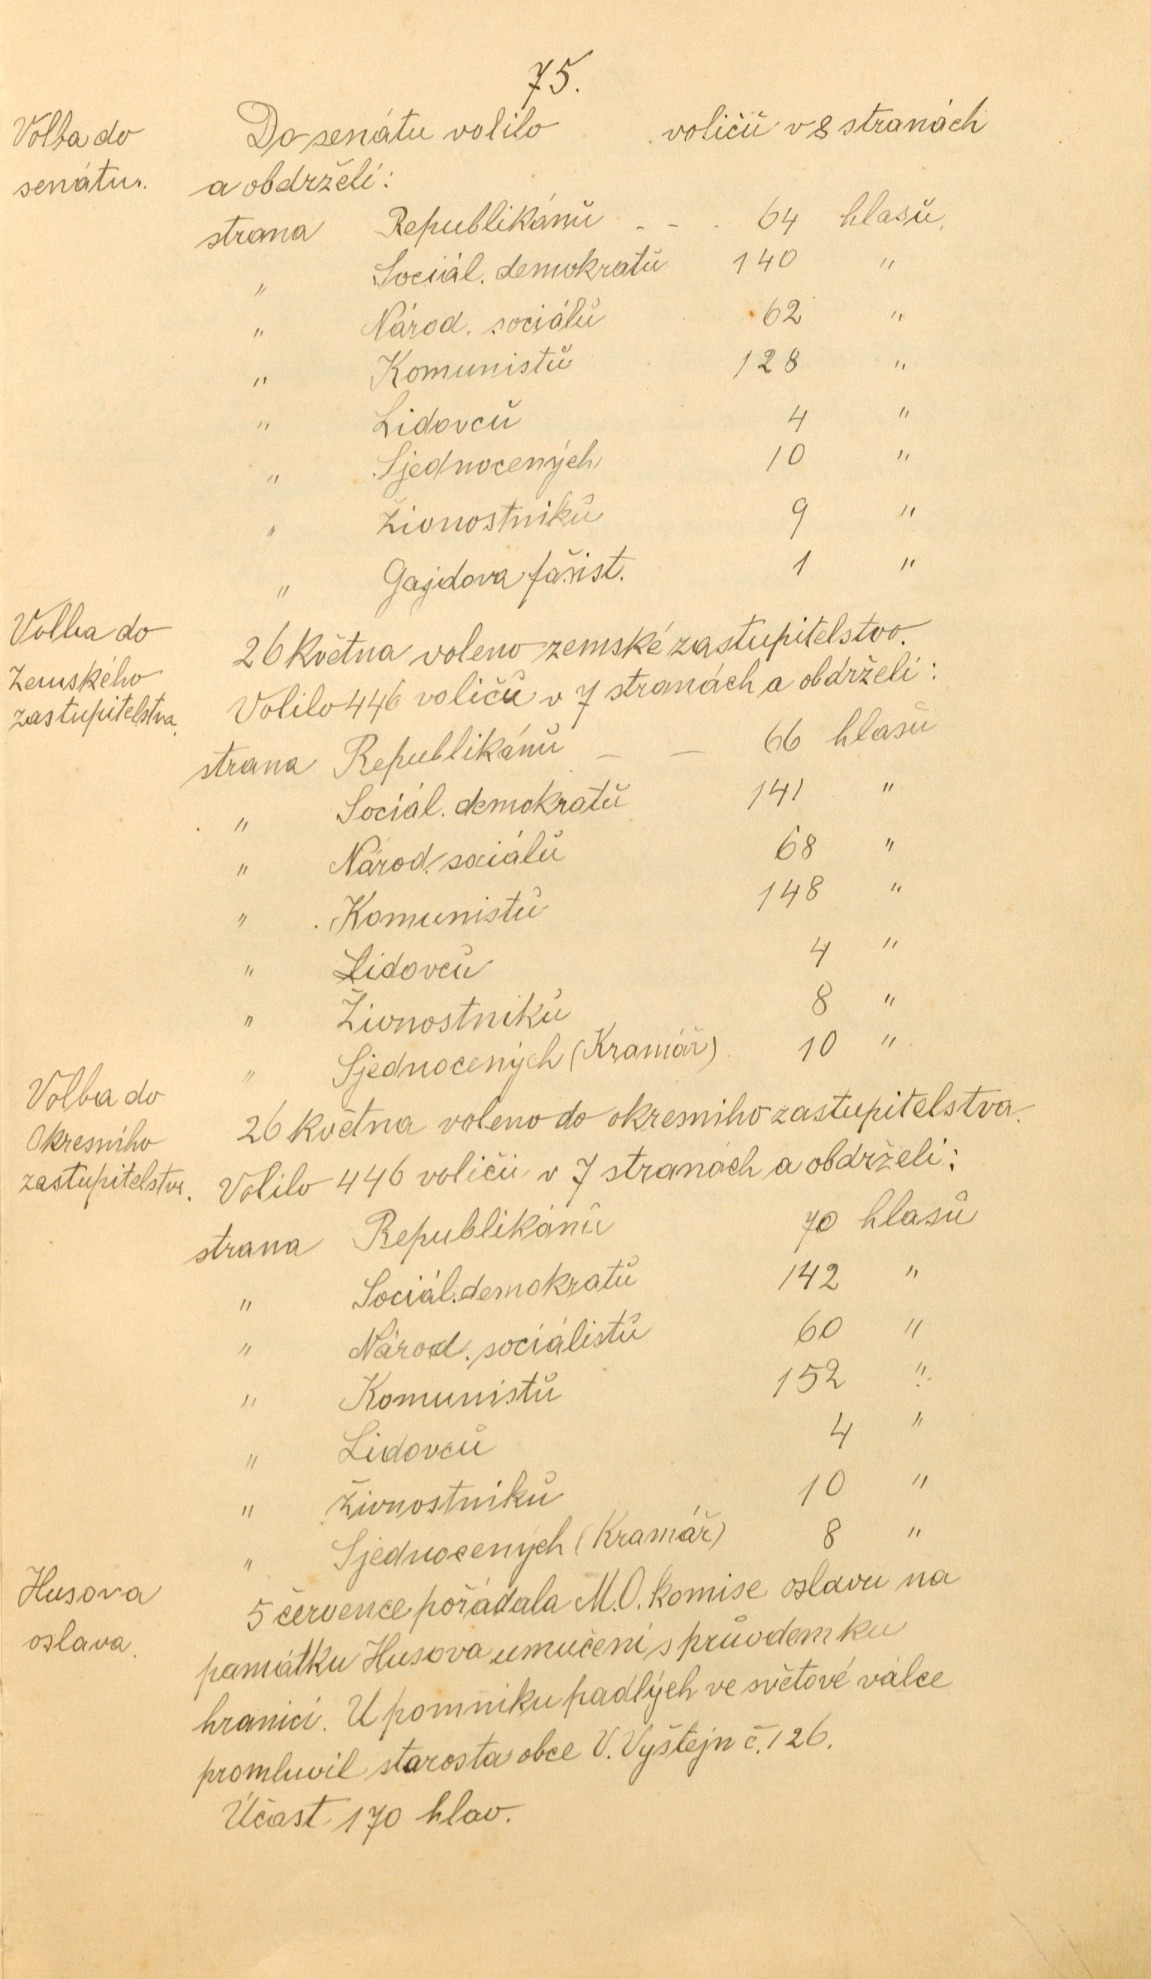 75.
Volba do
senátu.
Do senátu volilo voličů v 8 stranách
a obdrželi:
strana Republikánů - - . 64 hlasů,
" Sociál. demokratů 140 "
" Národ. sociálů 62 "
" Komunistů 128 "
" Lidovců 4 "
" Sjednocených 10 "
" Živnostníků 9 "
" Gajdova fašist. 1 "
Volba do
Zemského
zastupitelstva.
26 května voleno zemské zastupitelstvo.
Volilo 446 voličů v 7 stranách a obdrželi:
strana Republikánů - - 66 hlasů
" Sociál. demokratů 141 "
" Národ. sociálů 68 "
" Komunistů 148 "
" Lidovců 4 "
" Živnostníků 8 "
" Sjednocených (Kramář) 10 "
Volba do
Okresního
zastupitelstva.
26 května voleno do okresního zastupitelstva.
Volilo 446 voličů v 7 stranách a obdrželi:
strana Republikánů 70 hlasů
" Sociál. demokratů 142 "
" Národ. sociálistů 60 "
" Komunistů 152 "
" Lidovců 4 "
" Živnostníků 10 "
" Sjednocených (Kramář) 8 "
Husova
oslava.
5 července pořádala M.O. komise oslavu na
památku Husova umučení s průvodem ku
hranici. U pomníku padlých ve světové válce
promluvil starosta obce V. Vyštejn č. 126.
Účast 170 hlav.